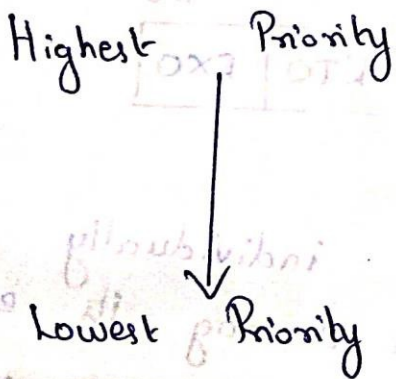 Highest Priority
Lowest Priority